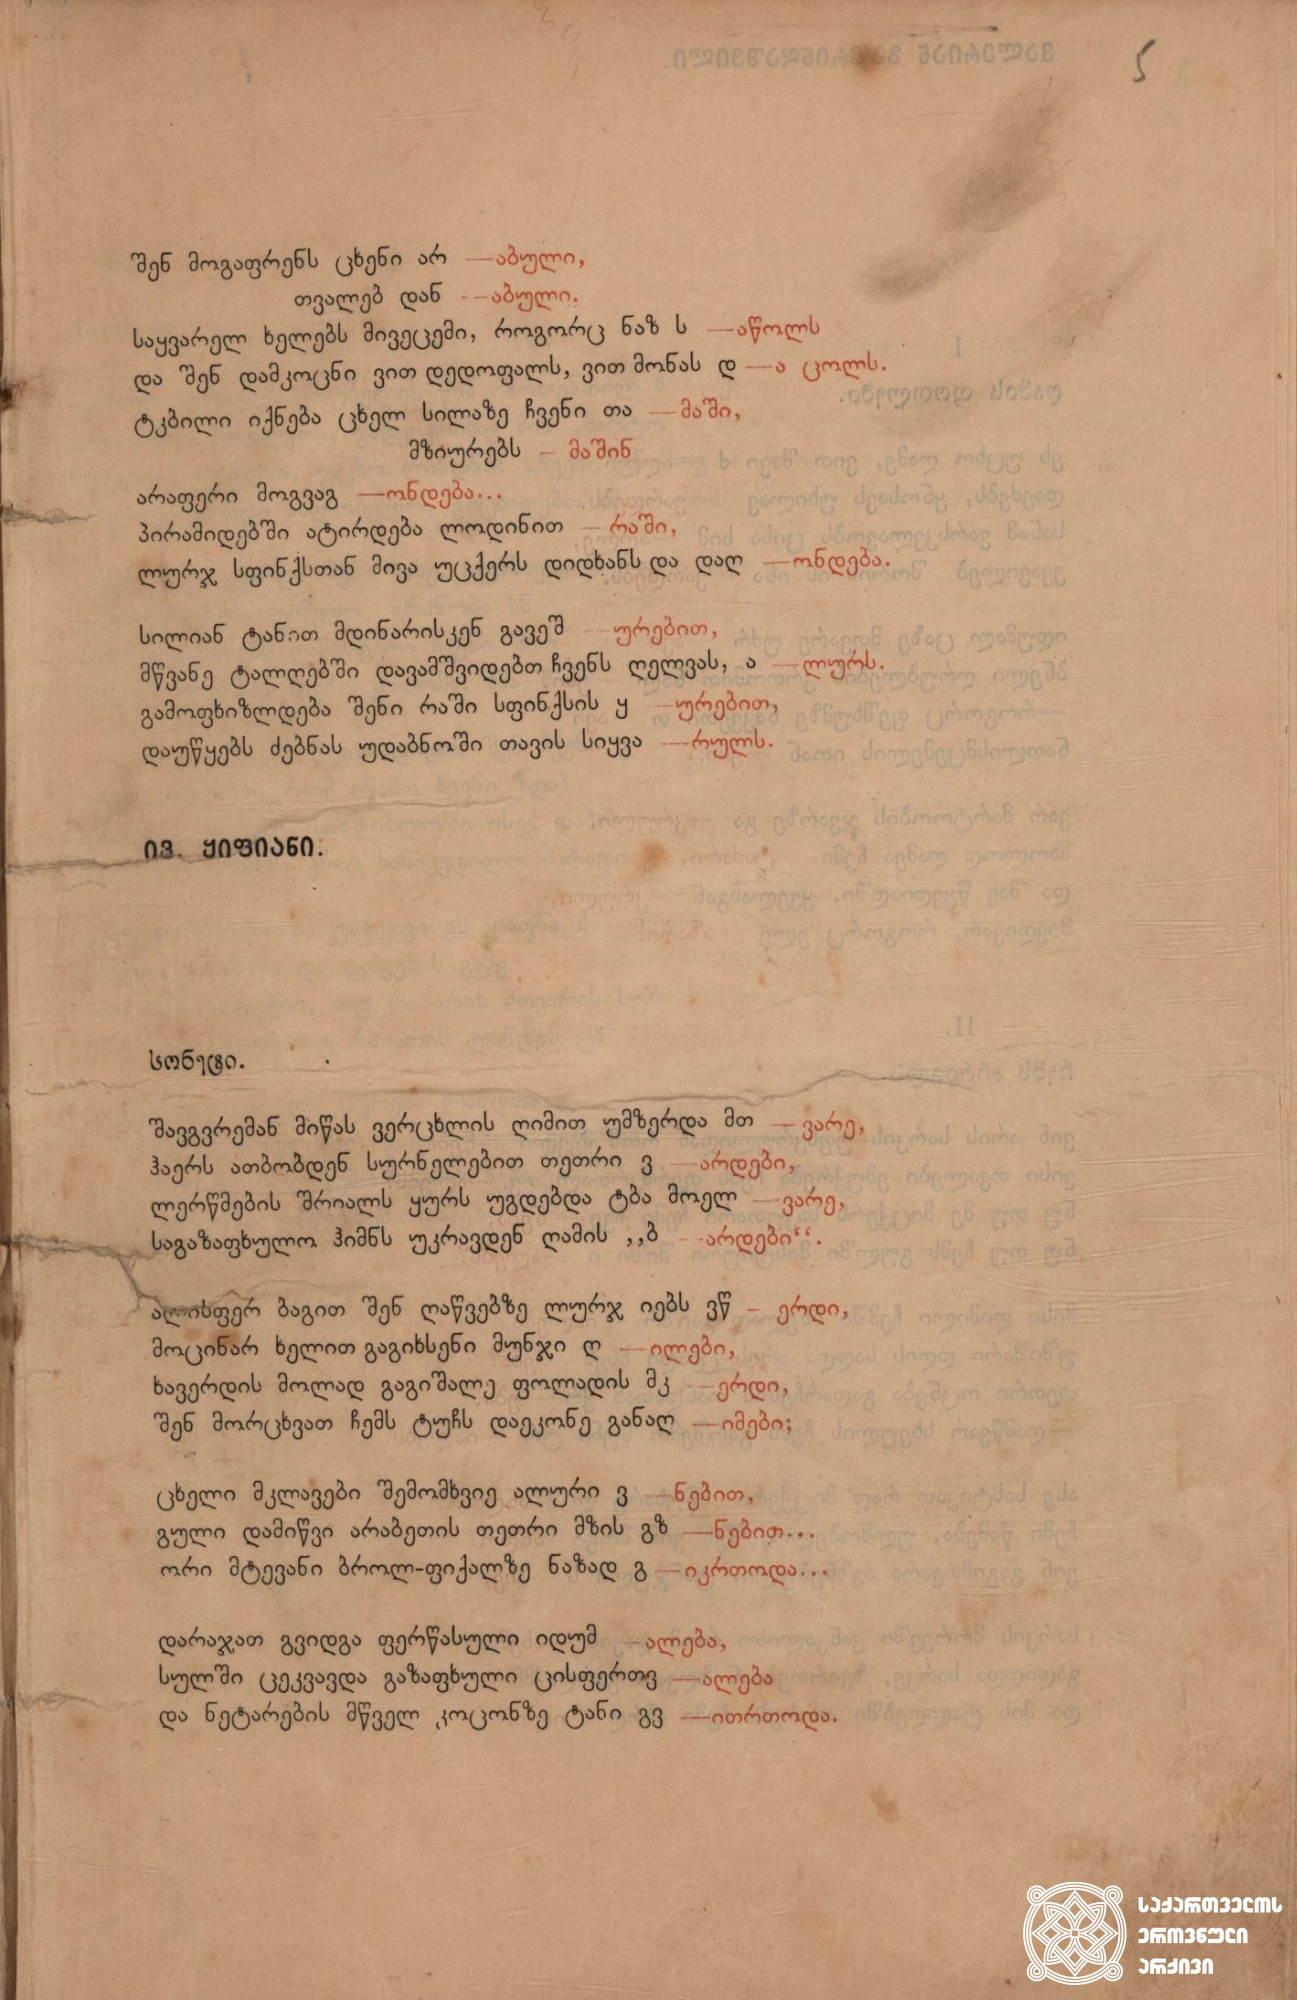 5
შენ მოგაფრენს ცხენი არ —აბული,
თვალებ დან —აბული.
საყვარელ ხელებს მივეცემი, როგორც ნაზ ს —აწოლს
და შენ დამკოცნი ვით დედოფალს, ვით მონას დ —ა ცოლს.
ტკბილი იქნება ცხელ სილაზე ჩვენი თა —მაში,
მზიურებს — მაშინ
არაფერი მოგვაგ —ონდება...
პირამიდებში ატირდება ლოდინით —რაში,
ლურჯ სფინქსთან მივა უცქერს დიდხანს და დაღ —ონდება.
სილიან ტანით მდინარისკენ გავეშ —ურებით,
მწვანე ტალღებში დავამშვიდებთ ჩვენს ღელვას, ა —ლურს.
გამოფხიზლდება შენი რაში სფინქსის ყ —ურებით,
დაუწყებს ძებნას უდაბნოში თავის სიყვა —რულს.
ივ. ყიფიანი.
სონეტი.
შავგვრემან მიწას ვერცხლის ღიმით უმზერდა მთ —ვარე,
ჰაერს ათბობდენ სურნელებით თეთრი ვ —არდები,
ლერწმების შრიალს ყურს უგდებდა ტბა მოელ —ვარე,
საგაზაფხულო ჰიმნს უკრავდენ ღამის ,,ბ —არდები“.
ალისფერ ბაგით შენ ღაწვებზე ლურჯ იებს ვწ — ერდი,
მოცინარ ხელით გაგიხსენი მუნჯი ღ —ილები,
ხავერდის მოლად გაგიშალე ფოლადის მკ —ერდი,
შენ მორცხვათ ჩემს ტუჩს დაეკონე განაღ —იმები;
ცხელი მკლავები შემომხვიე ალური ვ —ნებით,
გული დამიწვი არაბეთის თეთრი მზის გზ —ნებით...
ორი მტევანი ბროლ-ფიქალზე ნაზად გ —იკრთოდა...
დარაჯათ გვიდგა ფერწასული იდუმ —ალება,
სულში ცეკვავდა გაზაფხული ცისფერთვ —ალება
და ნეტარების მწველ კოცონზე ტანი გვ —ითრთოდა.
საქართველოს
ეროვნული
არქივი